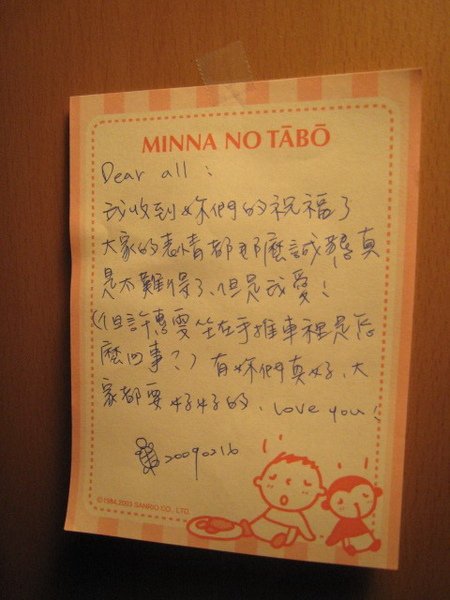 MINNA NO TĀBŌ
Dear all:
我收到妳們的祝福了
大家的表情都那麼誠懇真
是太難得了、但是我愛!
(但許惠雯坐在手推車裡是怎
麼回事?) 有妳們真好、大
家都要好好的、love you!
20090216
©1984,2003 SANRIO CO., LTD.